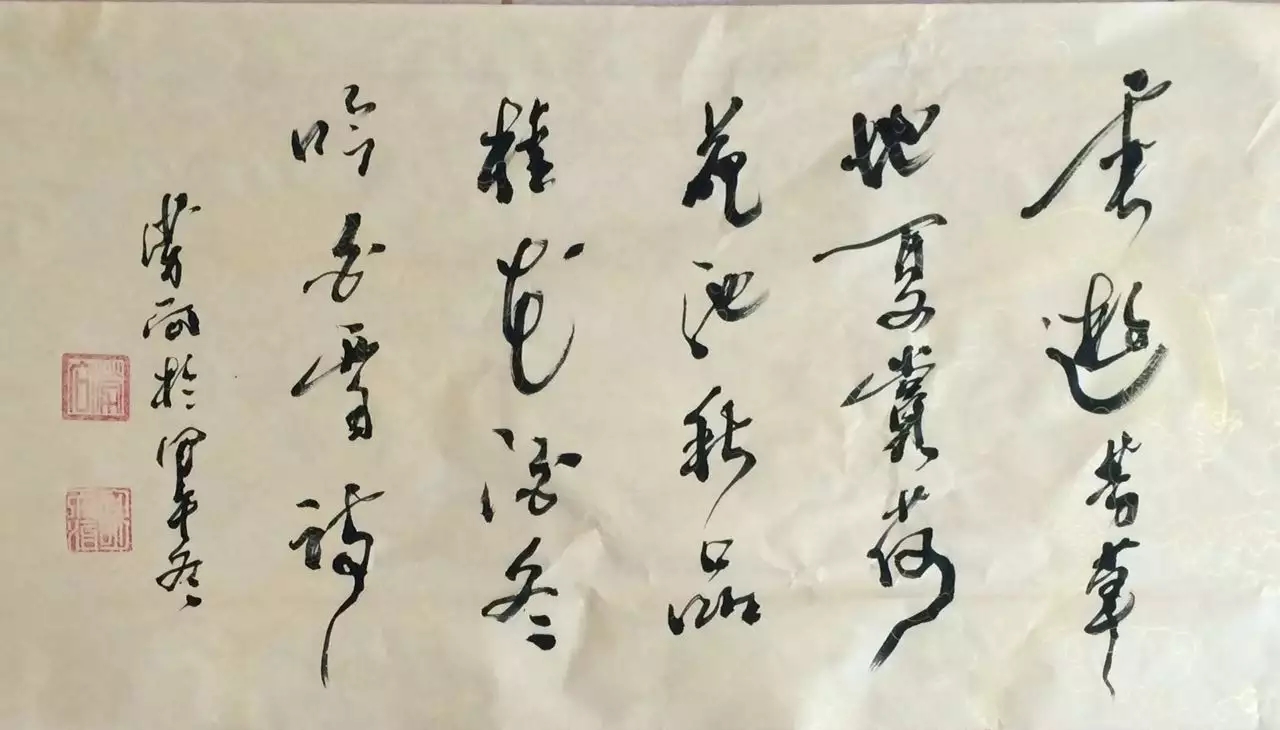 春遊芳草
地夏賞荷
花池秋品
桂花酒冬
吟白雪詩
於甲午冬